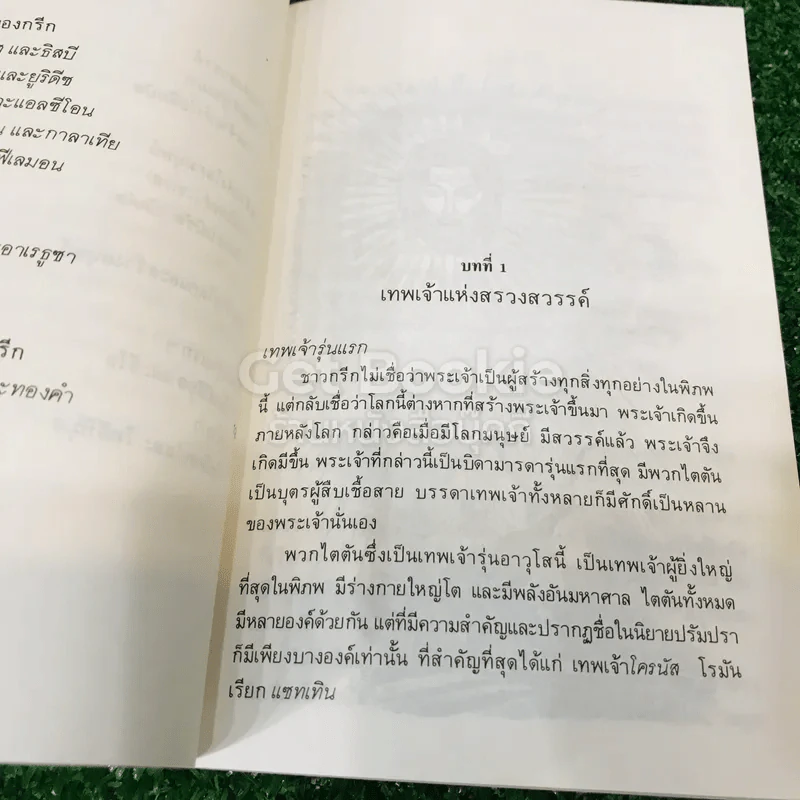 องกรีก
และธิสบี
และยูริดีซ
ะแอลซีโอน
และกาลาเทีย
ฟีเลมอน
อาเรธูซา
รีก
ะทองคำ
บทที่ 1
เทพเจ้าแห่งสรวงสวรรค์
เทพเจ้ารุ่นแรก
ชาวกรีกไม่เชื่อว่าพระเจ้าเป็นผู้สร้างทุกสิ่งทุกอย่างในพิภพ
นี้ แต่กลับเชื่อว่าโลกนี้ต่างหากที่สร้างพระเจ้าขึ้นมา พระเจ้าเกิดขึ้น
ภายหลังโลก กล่าวคือเมื่อมีโลกมนุษย์ มีสวรรค์แล้ว พระเจ้าจึง
เกิดมีขึ้น พระเจ้าที่กล่าวนี้เป็นบิดามารดารุ่นแรกที่สุด มีพวกไตตัน
เป็นบุตรผู้สืบเชื้อสาย บรรดาเทพเจ้าทั้งหลายก็มีศักดิ์เป็นหลาน
ของพระเจ้านั่นเอง
พวกไตตันซึ่งเป็นเทพเจ้ารุ่นอาวุโสนี้ เป็นเทพเจ้าผู้ยิ่งใหญ่
ที่สุดในพิภพ มีร่างกายใหญ่โต และมีพลังอันมหาศาล ไตตันทั้งหมด
มีหลายองค์ด้วยกัน แต่ที่มีความสำคัญและปรากฏชื่อในนิยายปรัมปรา
ก็มีเพียงบางองค์เท่านั้น ที่สำคัญที่สุดได้แก่ เทพเจ้าโครนัส โรมัน
เรียก แซทเทิน
Get Bookie